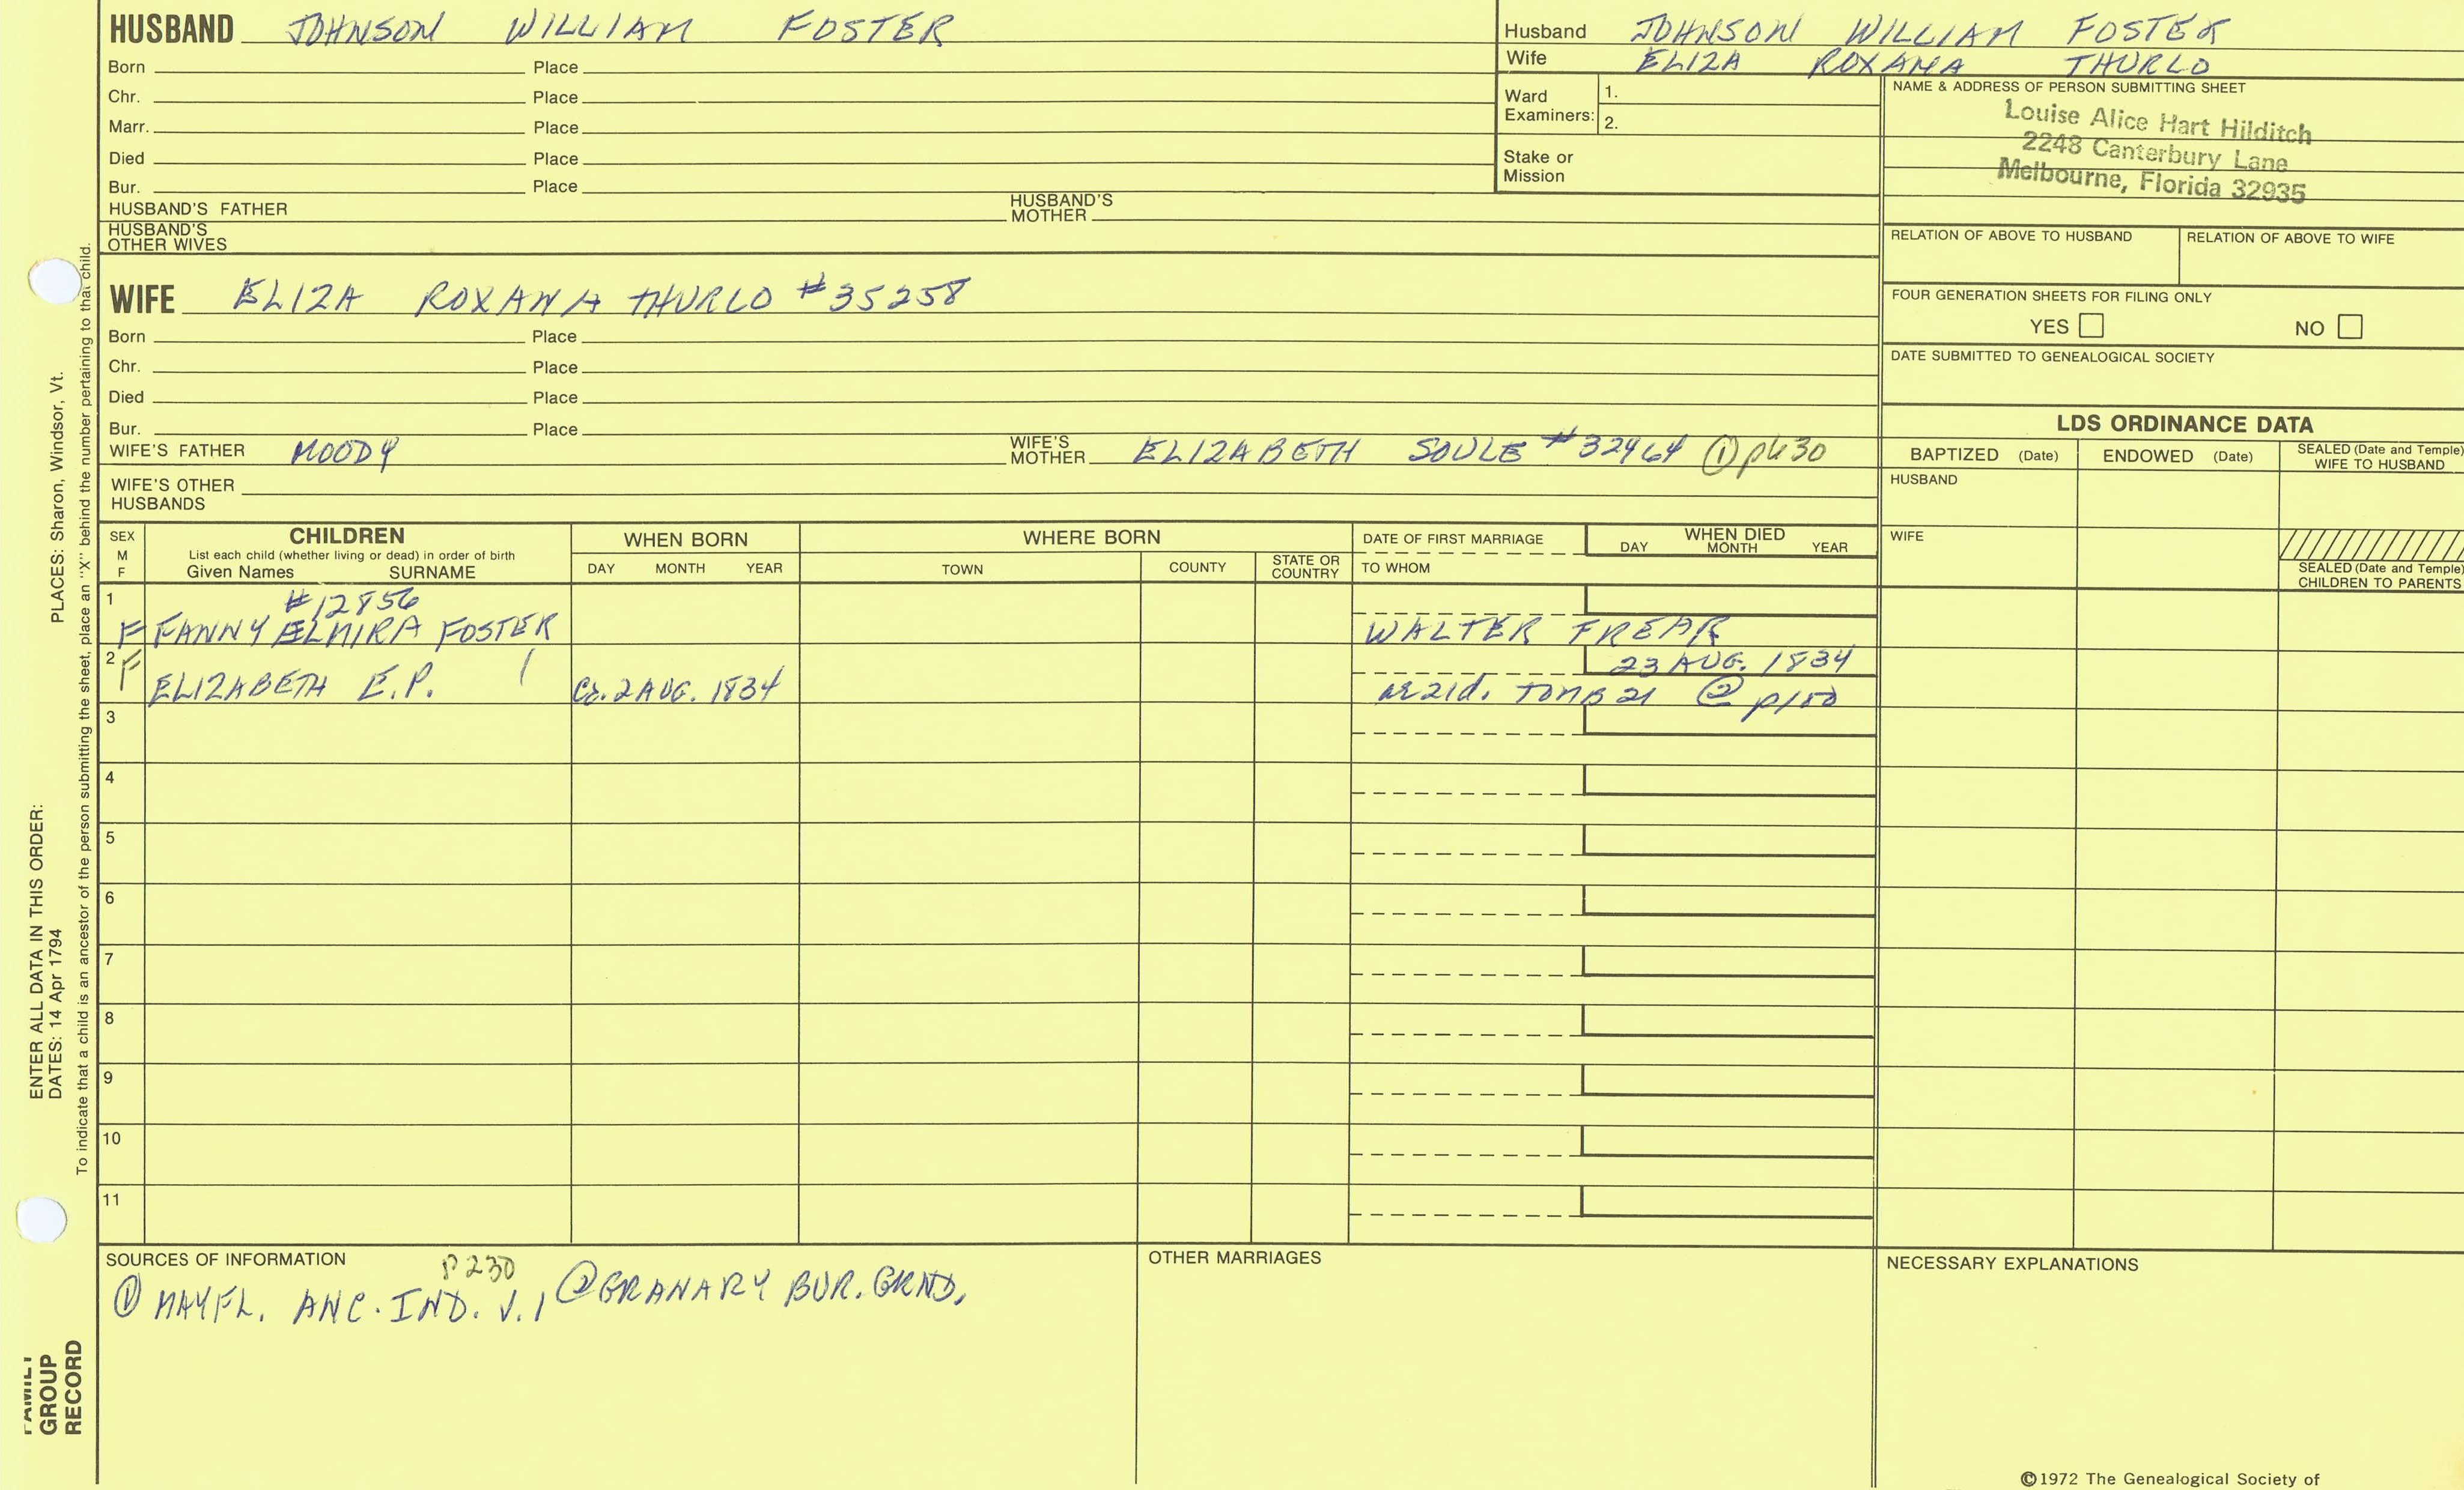 HUSBAND JOHNSON WILLIAM FOSTER
Born Place
Chr. Place
Marr. Place
Died Place
Bur. Place
HUSBAND'S FATHER HUSBAND'S MOTHER
HUSBAND'S OTHER WIVES
Husband JOHNSON WILLIAM FOSTER
Wife ELIZA ROXANA THURLO
Ward Examiners: 1.
2.
Stake or Mission
NAME & ADDRESS OF PERSON SUBMITTING SHEET
Louise Alice Hart Hilditch
2248 Canterbury Lane
Melbourne, Florida 32935
RELATION OF ABOVE TO HUSBAND RELATION OF ABOVE TO WIFE
FOUR GENERATION SHEETS FOR FILING ONLY
YES NO
DATE SUBMITTED TO GENEALOGICAL SOCIETY
WIFE ELIZA ROXANA THURLO #35258
Born Place
Chr. Place
Died Place
Bur. Place
WIFE'S FATHER MOODY WIFE'S MOTHER ELIZABETH SOULE #32464 ①
WIFE'S OTHER HUSBANDS
LDS ORDINANCE DATA
BAPTIZED (Date) ENDOWED (Date) SEALED (Date and Temple) WIFE TO HUSBAND
HUSBAND
WIFE
SEALED (Date and Temple) CHILDREN TO PARENTS
SEX M F
CHILDREN
List each child (whether living or dead) in order of birth
Given Names SURNAME
WHEN BORN
DAY MONTH YEAR
WHERE BORN
TOWN COUNTY STATE OR COUNTRY
DATE OF FIRST MARRIAGE
TO WHOM
WHEN DIED
DAY MONTH YEAR
1 #12856
F FANNY ELMIRA FOSTER WALTER FREAR
2 F 23 AUG. 1834
ELIZABETH E.P. 2 AUG. 1834 TOMB 21 ②
3
4
5
6
7
8
9
10
11
SOURCES OF INFORMATION P230
① MAYFL. ANC. IND. V.1 ② GRANARY BUR. GRND.
OTHER MARRIAGES
NECESSARY EXPLANATIONS
©1972 The Genealogical Society of
PLACES: Sharon, Windsor, Vt.
To indicate that a child is an ancestor of the person submitting the sheet, place an "X" behind the number pertaining to that child.
ENTER ALL DATA IN THIS ORDER:
DATES: 14 Apr 1794
FAMILY
GROUP
RECORD